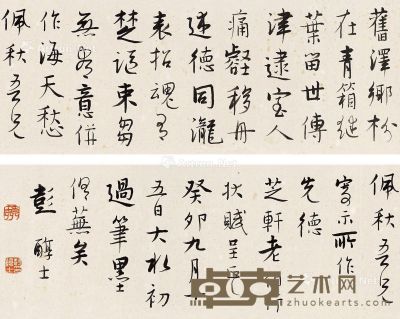 舊澤鄉枌
在青箱
葉留世傳
津逮室人
痛壑移舟
述德同瀧
表招魂有
楚謳束芻
無意併
作海天愁
佩秋吾兄
佩秋吾兄
寄示所作
先德
芝軒老
狀賦呈
癸卯九月
五日大水初
過筆墨
俱蕪矣
彭醇士
卓克艺术网
www.zhuokearts.com